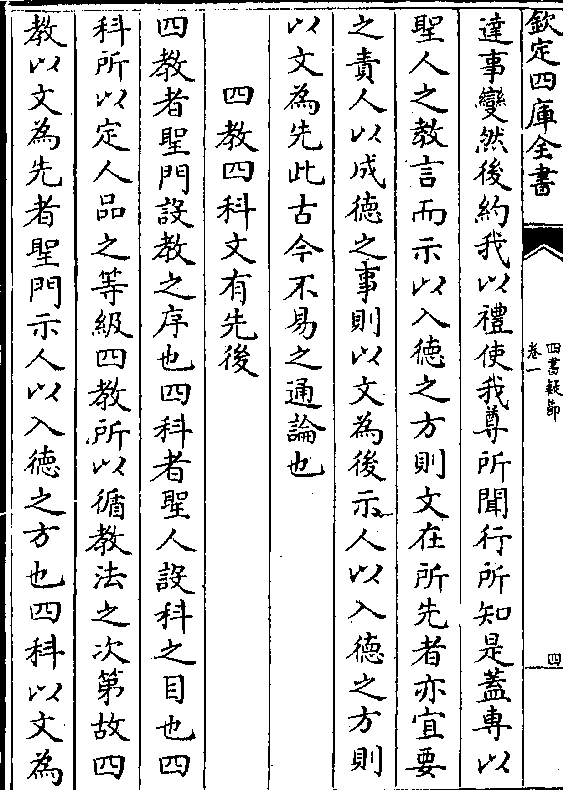 欽定四庫全書
四書疑節
卷一
四
達事變然後約我以禮使我尊所聞行所知是蓋專以
聖人之教言而示以入德之方則文在所先者亦宜要
之責人以成德之事則以文為後示人以入德之方則
以文為先此古今不易之通論也
四教四科文有先後
四教者聖門設教之序也四科者聖人設科之目也四
科所以定人品之等級四教所以循教法之次第故四
教以文為先者聖門示人以入德之方也四科以文為